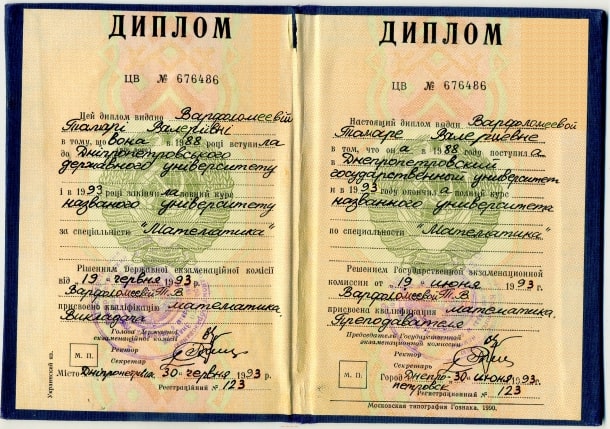 ДИПЛОМ
ЦВ № 676486
Цей диплом видано Варфоломеєвій
Тамарі Валеріївні
в тому, що вона в 1988 році вступила
до Дніпропетровського
державного університету
і в 1993 році закінчила повний курс
названого університету
за спеціальністю "Математика"
Рішенням Державної екзаменаційної комісії
від 19 червня 1993 р.
Варфоломеєвій Т.В.
присвоєно кваліфікацію математика.
Викладача
Голова Державної
екзаменаційної комісії
Ректор
Секретар
М. П.
Місто Дніпропетровськ 30 червня 1993 р.
Реєстраційний № 123
Украинский яз.
ДИПЛОМ
ЦВ № 676486
Настоящий диплом выдан Варфоломеевой
Тамаре Валериевне
в том, что она в 1988 году поступила
в Днепропетровский
государственный университет
и в 1993 году окончила полный курс
названного университета
по специальности "Математика"
Решением Государственной экзаменационной
комиссии от 19 июня 1993 г.
Варфоломеевой Т.В.
присвоена квалификация математика.
Преподавателя
Председатель Государственной
экзаменационной комиссии
Ректор
Секретарь
М. П.
Город Днепро-
петровск 30 июня 1993 г.
Регистрационный № 123
Московская типография Гознака. 1990.